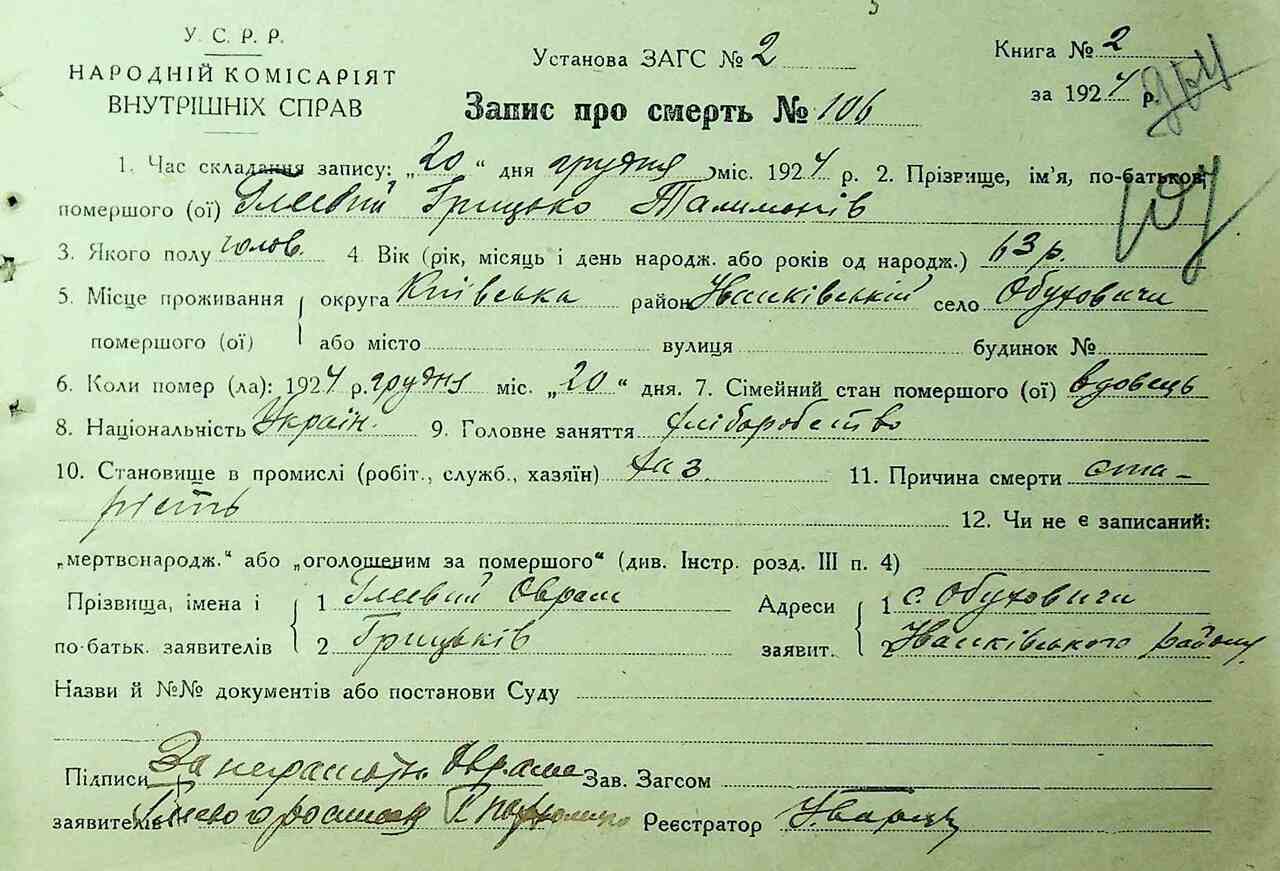 У. С. Р. Р.
НАРОДНІЙ КОМІСАРІЯТ
ВНУТРІШНІХ СПРАВ
Установа ЗАГС № 2
Книга № 2
за 1924 р.
Запис про смерть № 106
107
1. Час складання запису: „20“ дня грудня міс. 1924 р. 2. Прізвище, ім'я, по-батькові
помершого (ої) Грицько Талимонів
3. Якого полу чолов. 4. Вік (рік, місяць і день народж. або років од народж.) 63 р.
5. Місце проживання округа Київська район Іванківській село Обуховичи
помершого (ої) або місто вулиця будинок №
6. Коли помер (ла): 1924 р. грудня міс. „20“ дня. 7. Сімейний стан помершого (ої) вдовець
8. Національність Україн. 9. Головне заняття хліборобство
10. Становище в промислі (робіт., служб., хазяїн) хаз. 11. Причина смерти ста-
рість 12. Чи не є записаний:
„мертвонародж.“ або „оголошеним за помершого“ (див. Інстр. розд. III п. 4)
Прізвища, імена і 1 Оврам Адреси 1 с. Обуховичи
по-батьк. заявителів 2 Грицьків заявит. 2 Іванківського району
Назви й №№ документів або постанови Суду
Підписи За неграмотн. Оврама Зав. Загсом
заявителів Реєстратор